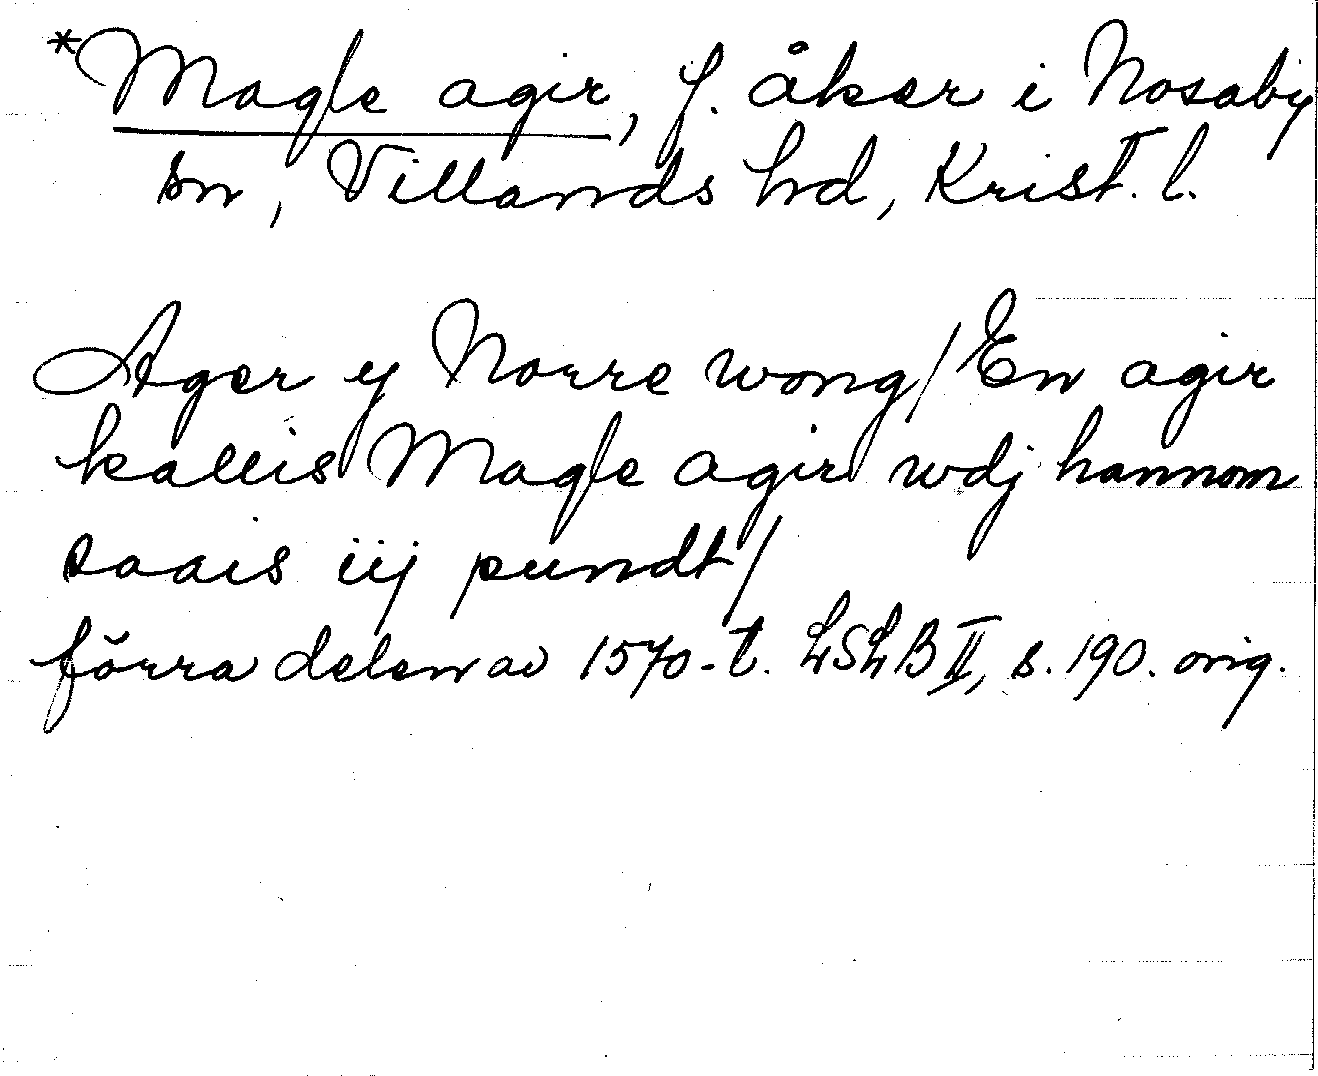 *Magle agir, f. åker i Nosaby
sn, Villands hd, Krist. l.
Ager y Norre wong/ En agir
kallis Magle agir wdj hannom
saais iij pundt/
förra delen av 1570-t. LSLB II, s. 190. orig.